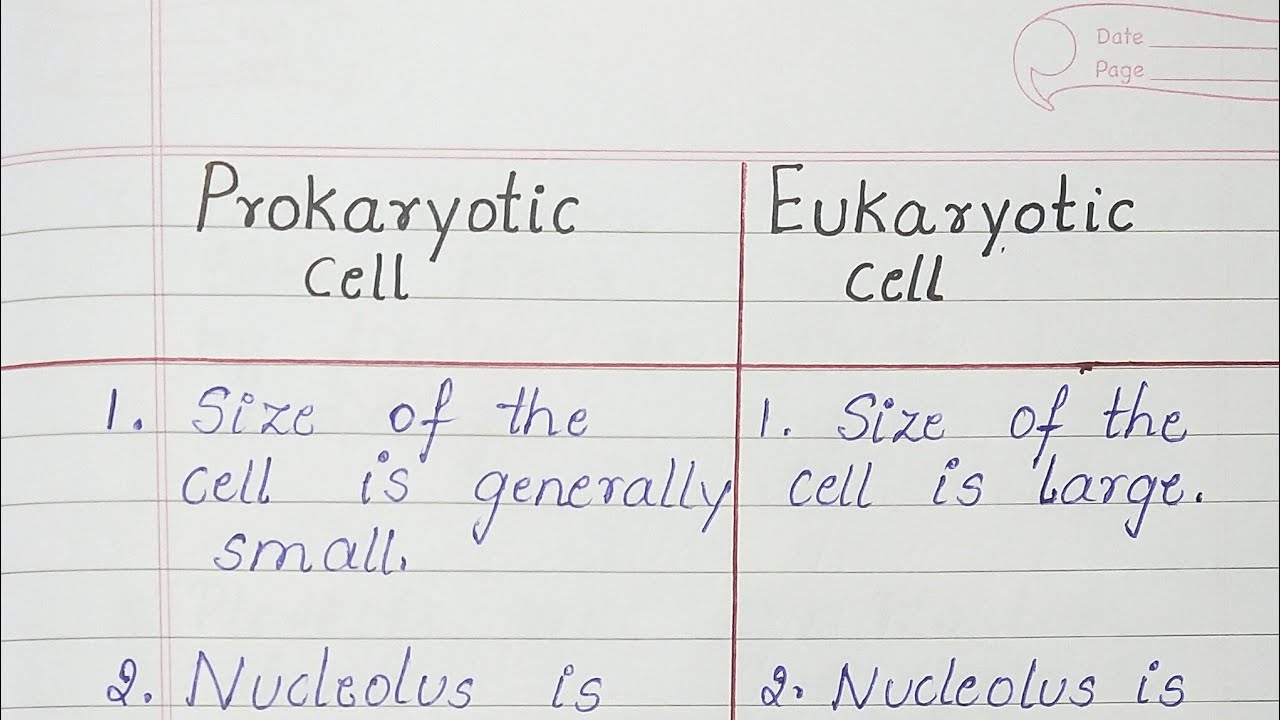 Date
Page
Prokaryotic
cell
Eukaryotic
cell
1. Size of the
cell is generally
small.
1. Size of the
cell is large.
2. Nucleolus is
2. Nucleolus is